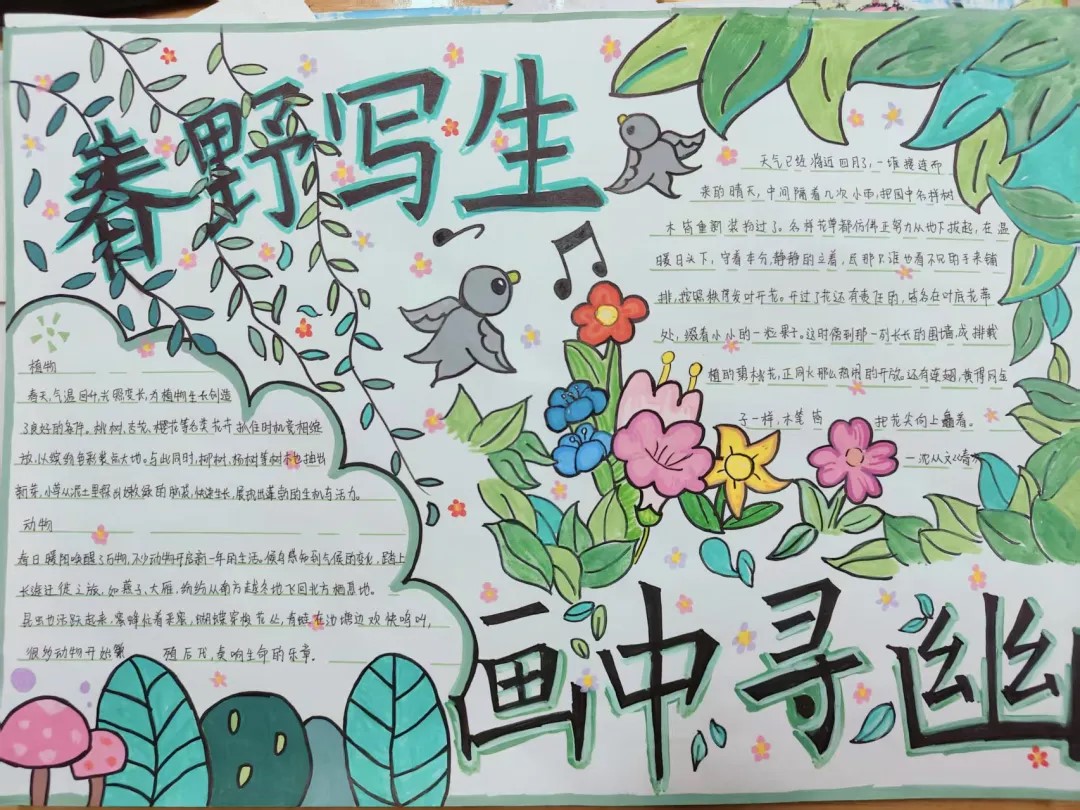 春野写生
天气已经将近四月了，一堆接连而
来的晴天，中间隔着几次小雨，把园中各样树
木皆重新装扮过了。各样花草都仿佛正努力从地下拔起，在温
暖日头下，守着本分，静静的立着，尽那只谁也看不见的手来铺
排，按照秩序发叶开花。开过了花还有责任的，皆各在叶底花蒂
处，缀着小小的一粒果子。这时傍到那一列长长的围墙，成排栽
植的碧桃花，正同火那么热闹的开放。还有连翘，黄得同金
子一样，木笔皆把花尖向上矗着。
—沈从文《春》
植物
春天，气温回升，光照变长，为植物生长创造
了良好的条件。桃树、杏花、樱花等各类花卉抓住时机竞相绽
放，以缤纷色彩装点大地。与此同时，柳树、杨树等树木也抽出
新芽，小草从泥土里探出嫩绿的脑袋，快速生长，展现出蓬勃的生机与活力。
动物
春日暖阳唤醒了万物，不少动物开启新一年的生活。候鸟感知到气候的变化，踏上
长途迁徙之旅，如燕子、大雁，纷纷从南方越冬地飞回北方栖息地。
昆虫也活跃起来，蜜蜂忙着采蜜，蝴蝶穿梭花丛，青蛙在池塘边欢快鸣叫，
很多动物开始繁 殖后代，奏响生命的乐章。
画中寻幽